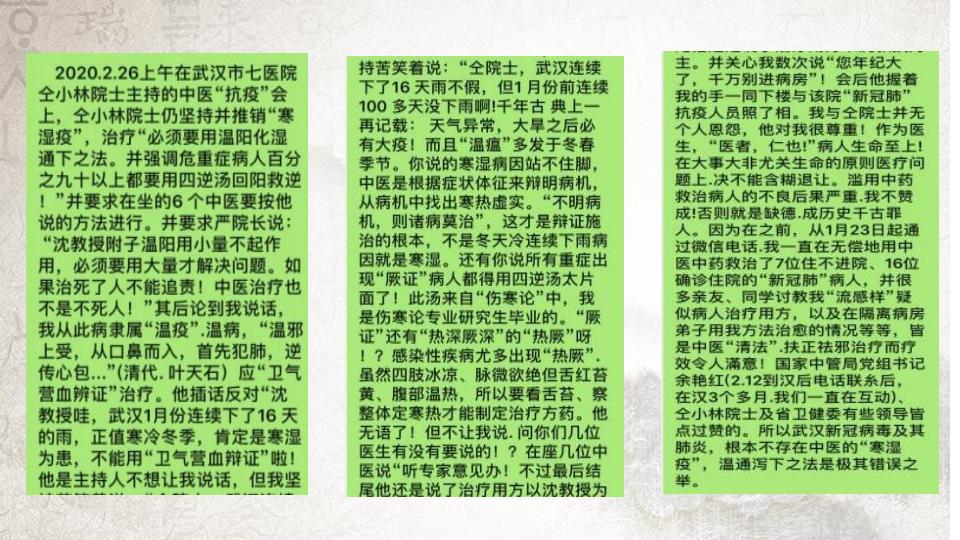 2020.2.26上午在武汉市七医院
仝小林院士主持的中医“抗疫”会
上，仝小林院士仍坚持并推销“寒
湿疫”，治疗“必须要用温阳化湿
通下之法。并强调危重症病人百分
之九十以上都要用四逆汤回阳救逆
！”并要求在坐的6 个中医要按他
说的方法进行。并要求严院长说：
“沈教授附子温阳用小量不起作
用，必须要用大量才解决问题。如
果治死了人不能追责！中医治疗也
不是不死人！”其后论到我说话，
我从此病隶属“温疫”.温病，“温邪
上受，从口鼻而入，首先犯肺，逆
传心包...”(清代. 叶天石）应“卫气
营血辨证”治疗。他插话反对“沈
教授哇，武汉1月份连续下了16 天
的雨，正值寒冷冬季，肯定是寒湿
为患，不能用“卫气营血辩证”啦！
他是主持人不想让我说话，但我坚
持苦笑着说：“仝院士，武汉连续
下了16 天雨不假，但1 月份前连续
100 多天没下雨啊!千年古 典上一
再记载： 天气异常，大旱之后必
有大疫！而且“温瘟”多发于冬春
季节。你说的寒湿病因站不住脚，
中医是根据症状体征来辩明病机，
从病机中找出寒热虚实。“不明病
机，则诸病莫治”，这才是辩证施
治的根本，不是冬天冷连续下雨病
因就是寒湿。还有你说所有重症出
现“厥证”病人都得用四逆汤太片
面了！此汤来自“伤寒论”中，我
是伤寒论专业研究生毕业的。“厥
证”还有“热深厥深”的“热厥”呀
！？感染性疾病尤多出现“热厥”.
虽然四肢冰凉、脉微欲绝但舌红苔
黄、腹部温热，所以要看舌苔、察
整体定寒热才能制定治疗方药。他
无语了！但不让我说. 问你们几位
医生有没有要说的！？在座几位中
医说“听专家意见办！不过最后结
尾他还是说了治疗用方以沈教授为
主。并关心我数次说“您年纪大
了，千万别进病房”！会后他握着
我的手一同下楼与该院“新冠肺”
抗疫人员照了相。我与仝院士并无
个人恩怨，他对我很尊重！作为医
生，“医者，仁也!”病人生命至上!
在大事大非尤关生命的原则医疗问
题上.决不能含糊退让。滥用中药
救治病人的不良后果严重.我不赞
成!否则就是缺德.成历史千古罪
人。因为在之前，从1月23日起通
过微信电话.我一直在无偿地用中
医中药救治了7位住不进院、16位
确诊住院的“新冠肺”病人，并很
多亲友、同学讨教我“流感样”疑
似病人治疗用方，以及在隔离病房
弟子用我方法治愈的情况等等，皆
是中医“清法”.扶正祛邪治疗而疗
效令人滿意！国家中管局党组书记
余艳红(2.12到汉后电话联系后，
在汉3个多月.我们一直在互动）、
仝小林院士及省卫健委有些领导皆
点过赞的。所以武汉新冠病毒及其
肺炎，根本不存在中医的“寒湿
疫”，温通泻下之法是极其错误之
举。